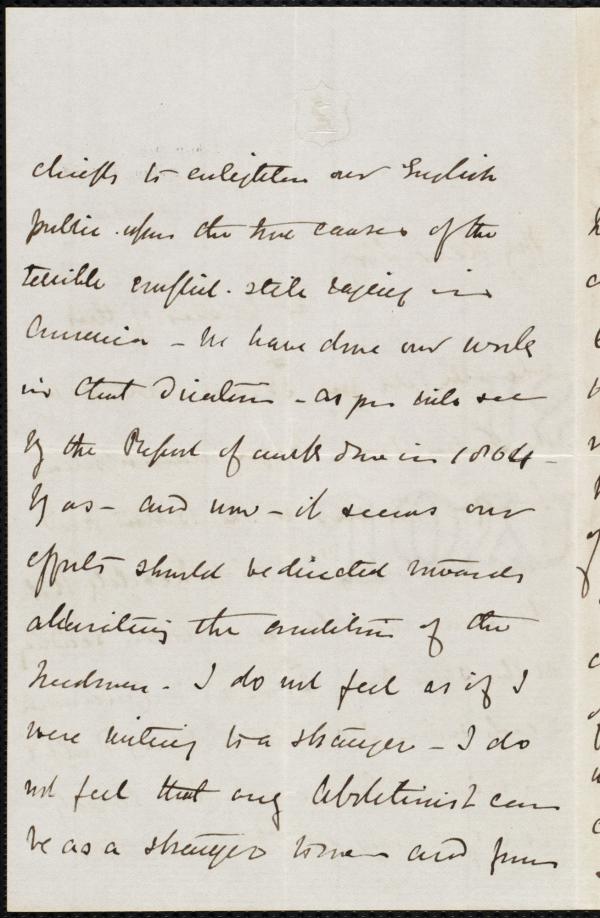 chiefly to enlighten our English
public upon the true causes of the
terrible conflict still raging in
America – We have done our work
in that direction – as you will see
by the Report of work done in 1864 –
by us – and now – it seems our
efforts should be directed towards
alleviating the condition of the
freedmen – I do not feel as if I
were writing to a stranger – I do
not feel that any Abolitionist can
be as a stranger to me and from